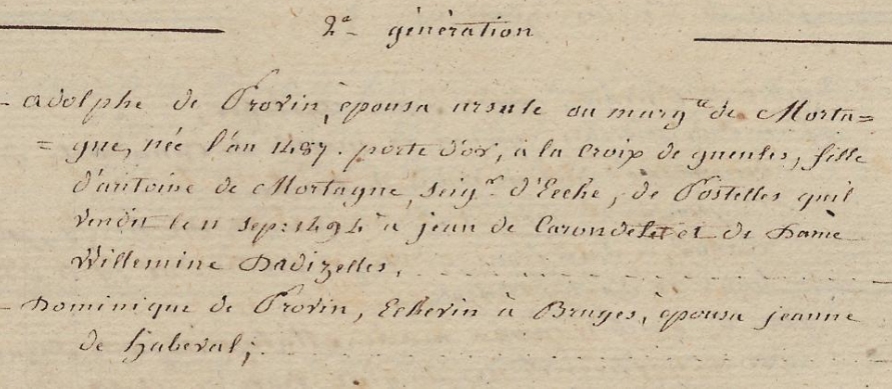 2.e génération
- adolphe de Provin, épousa ursule ou marg.te de Morta=
= gne, née l'an 1487. porte d'or, à la croix de gueules, fille
d'antoine de Mortagne, seig.r d'Eeche, de Postelles quil
vendit le 11 sep: 1494 a jean de Carondelet et de Dame
Willemine Dadizelles,
- Dominique de Provin, Echevin à Bruges, épousa jeanne
de haberal;